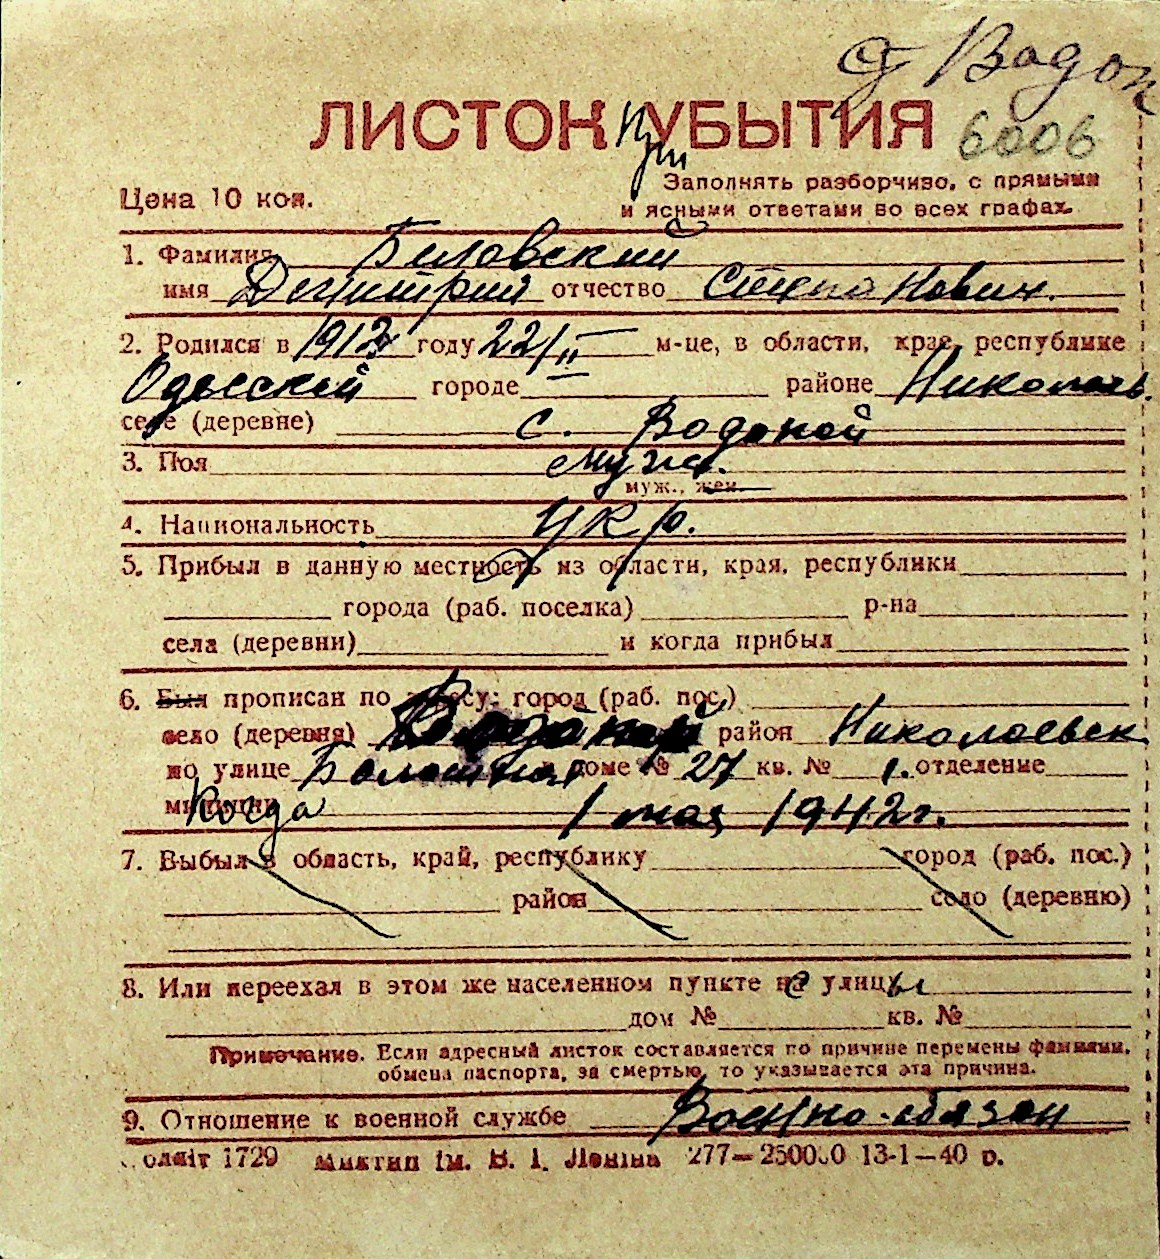 с Вадоп
ЛИСТОК При УБЫТИЯ 6006
Цена 10 коп. Заполнять разборчиво, с прямыми
и ясными ответами во всех графах.
1. Фамилия Биловский
имя Демитрий отчество Степанович.
2. Родился в 1912 году 22/II м-це, в области, крае, республике
Одесской городе районе Николаев.
селе (деревне) с. Водоной
3. Пол муж.
муж., жен.
4. Национальность Укр.
5. Прибыл в данную местность из области, края, республики
города (раб. поселка) р-на
села (деревни) и когда прибыл
6. Был прописан по адресу: город (раб. пос.)
село (деревня) район Николаевск
по улице доме № 27 кв. № 1. отделение
милиции Когда 1 мая 1942 г.
7. Выбыл в область, край, республику город (раб. пос.)
район село (деревню)
8. Или переехал в этом же населенном пункте с улицы
дом № кв. №
Примечание. Если адресный листок составляется по причине перемены фамилии,
обмена паспорта, за смертью, то указывается эта причина.
9. Отношение к военной службе Военно-обязан
оліліт 1729 Миктип Ім. В. І. Леніна 277—250000 13-1—40 р.